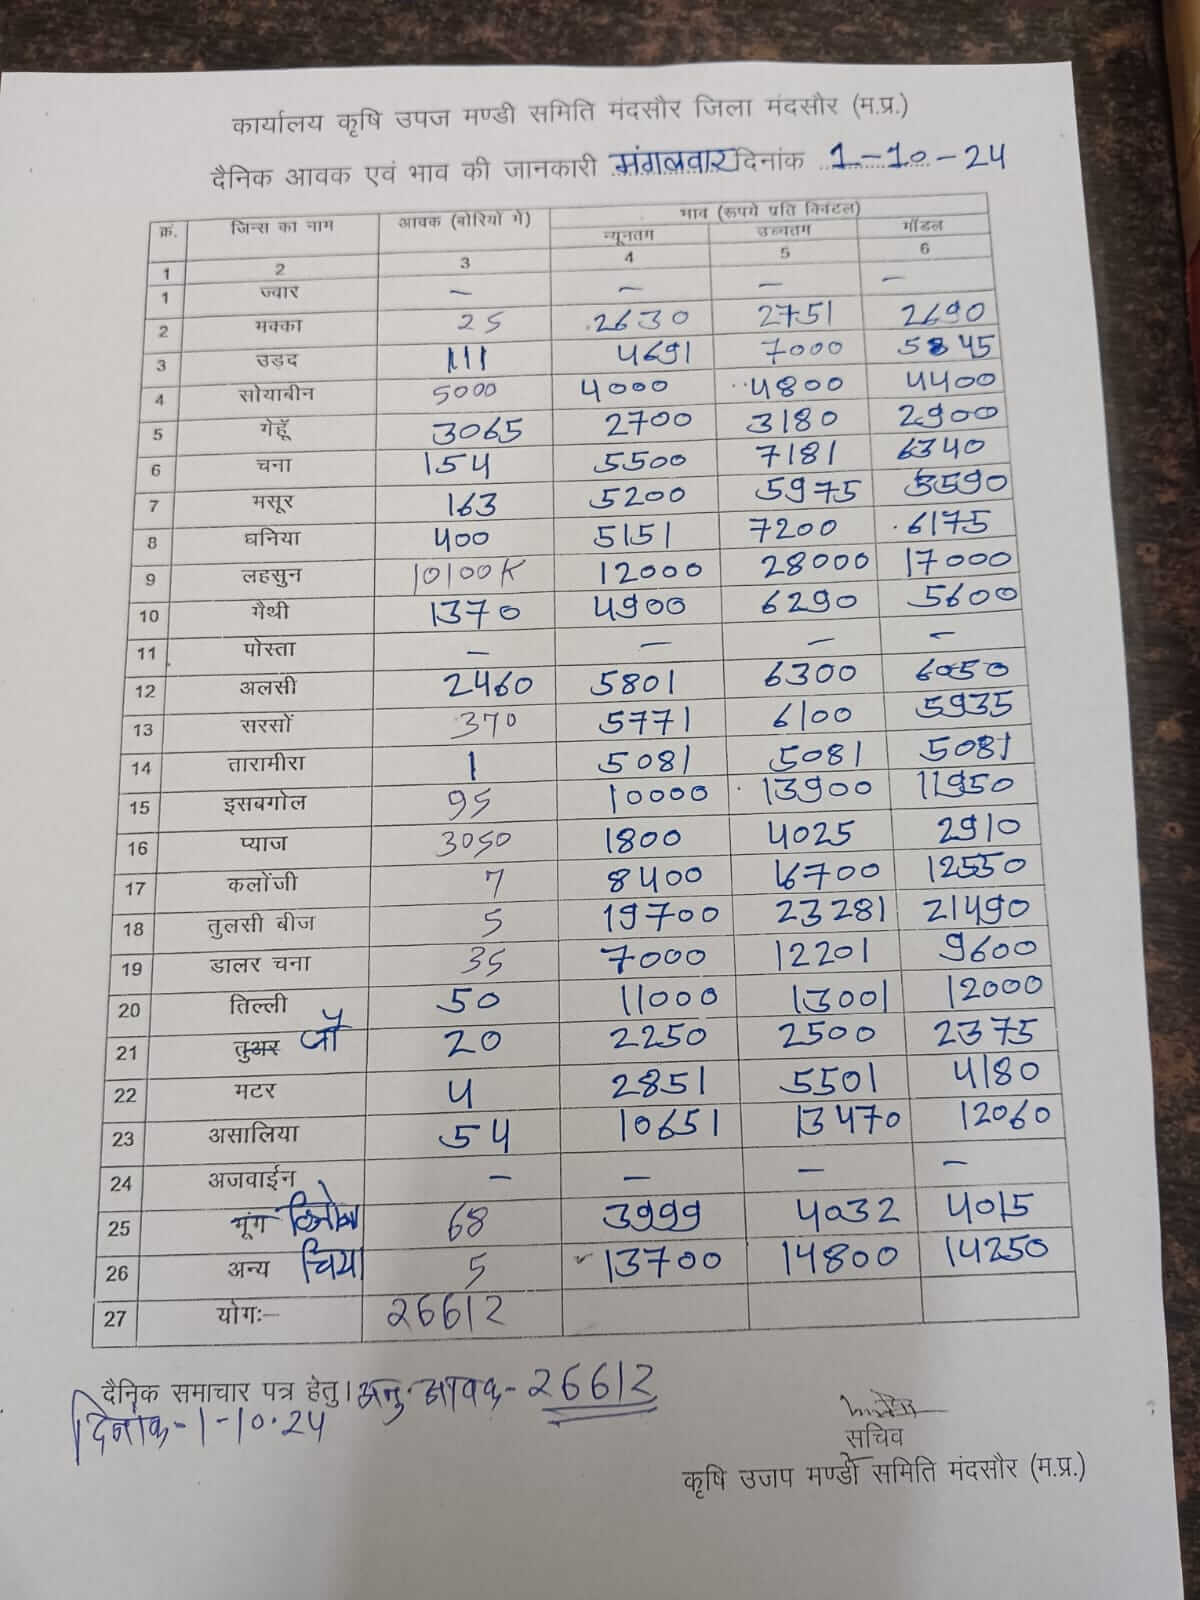 कार्यालय कृषि उपज मण्डी समिति मंदसौर जिला मंदसौर (म.प्र.)
दैनिक आवक एवं भाव की जानकारी मंगलवार दिनांक 1-10-24
क्रं. जिन्स का नाम आवक (बोरियों में) भाव (रूपये प्रति क्विंटल)
न्यूनतम उच्चतम मॉडल
1 2 3 4 5 6
1 ज्वार – – – –
2 मक्का 25 2630 2751 2690
3 उड़द 111 4691 7000 5845
4 सोयाबीन 5000 4000 4800 4400
5 गेहूँ 3065 2700 3180 2900
6 चना 154 5500 7181 6340
7 मसूर 163 5200 5975 5590
8 धनिया 400 5151 7200 6175
9 लहसुन 10100K 12000 28000 17000
10 गैथी 1370 4900 6290 5600
11 पोस्ता – – – –
12 अलसी 2460 5801 6300 6050
13 सरसों 370 5771 6100 5935
14 तारामीरा 1 5081 5081 5081
15 इसबगोल 95 10000 13900 11950
16 प्याज 3050 1800 4025 2910
17 कलोंजी 7 8400 16700 12550
18 तुलसी बीज 5 19700 23281 21490
19 डालर चना 35 7000 12201 9600
20 तिल्ली 50 11000 13001 12000
21 तुअर जौ 20 2250 2500 2375
22 मटर 4 2851 5501 4180
23 असालिया 54 10651 13470 12060
24 अजवाईन – – – –
25 मूंग 68 3999 4032 4015
26 अन्य चिया 5 13700 14800 14250
27 योगः– 26612
दैनिक समाचार पत्र हेतु। अनु. आवक- 26612
दिनांक-1-10.24
सचिव
कृषि उजप मण्डी समिति मंदसौर (म.प्र.)